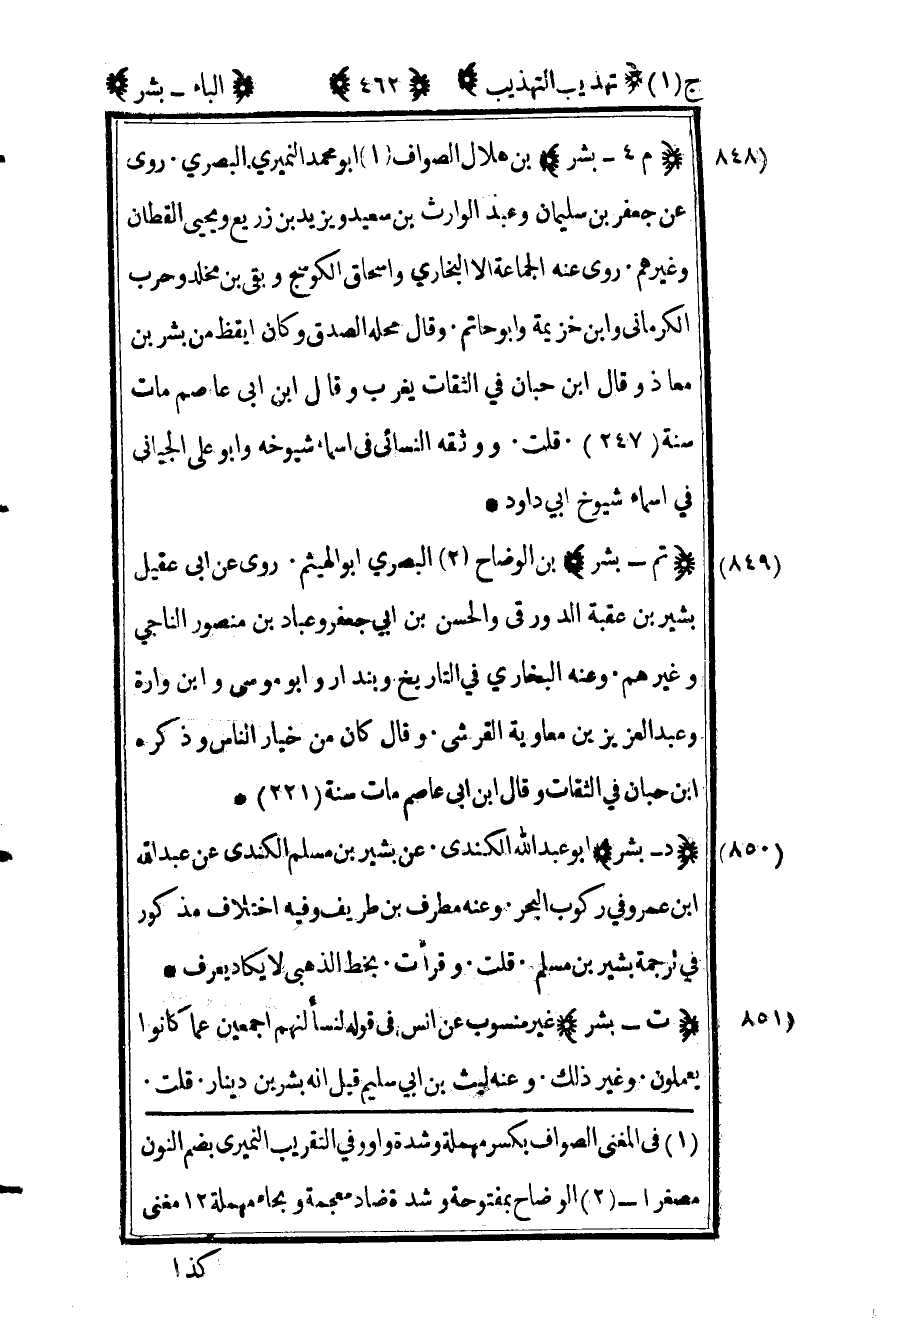 ج (١) ﴿ تهذيب التهذيب ﴾ ﴿ ٤٦٢ ﴾ ﴿ الباء ـ بشر ﴾
(٨٤٨) ﴿ م ٤ ـ بشر ﴾ بن هلال الصواف (١) ابو محمد النميري البصري ٠ روى
عن جعفر بن سليمان وعبد الوارث بن سعيد ويزيد بن زريع ويحيى القطان
وغيرهم ٠ روى عنه الجماعة الا البخاري واسحاق الكوسج و بقى بن مخلد وحرب
الكرمانى وابن خزيمة وابو حاتم ٠ وقال محله الصدق وكان ايقظ من بشر بن
معاذ وقال ابن حبان في الثقات يغرب وقال ابن ابى عاصم مات
سنة ( ٢٤٧ ) ٠ قلت ٠ و وثقه النسائى فى اسماء شيوخه وابو على الجيانى
في اسماء شيوخ ابي داود *
(٨٤٩) ﴿ تم ـ بشر ﴾ بن الوضاح (٢) البصري ابو الهيثم ٠ روى عن ابى عقيل
بشير بن عقبة الدورقى والحسن بن ابي جعفر وعباد بن منصور الناجي
وغيرهم ٠ وعنه البخاري في التاريخ وبندار و ابو موسى و ابن وارة
وعبد العزيز بن معاوية القرشى ٠ و قال كان من خيار الناس و ذكره
ابن حبان في الثقات و قال ابن ابى عاصم مات سنة (٢٢١) *
(٨٥٠) ﴿ د ـ بشر ﴾ ابو عبد الله الكندى ٠ عن بشير بن مسلم الكندى عن عبد الله
ابن عمرو في ركوب البحر ٠ وعنه مطرف بن طريف وفيه اختلاف مذكور
في ترجمة بشير بن مسلم ٠ قلت ٠ و قرأت ٠ بخط الذهبى لا يكاد يعرف *
(٨٥١) ﴿ ت ـ بشر ﴾ غير منسوب عن انس فى قوله لنسألنهم اجمعين عما كانوا
يعملون ٠ وغير ذلك ٠ و عنه ليث بن ابي سليم قيل انه بشر بن دينار ٠ قلت ٠
(١) فى المغنى الصواف بكسر مهملة وشدة واو و في التقريب النميرى بضم النون
مصغرا ـ (٢) الوضاح بمفتوحة و شدة ضاد معجمة و بحاء مهملة ١٢ مغنى
كذا